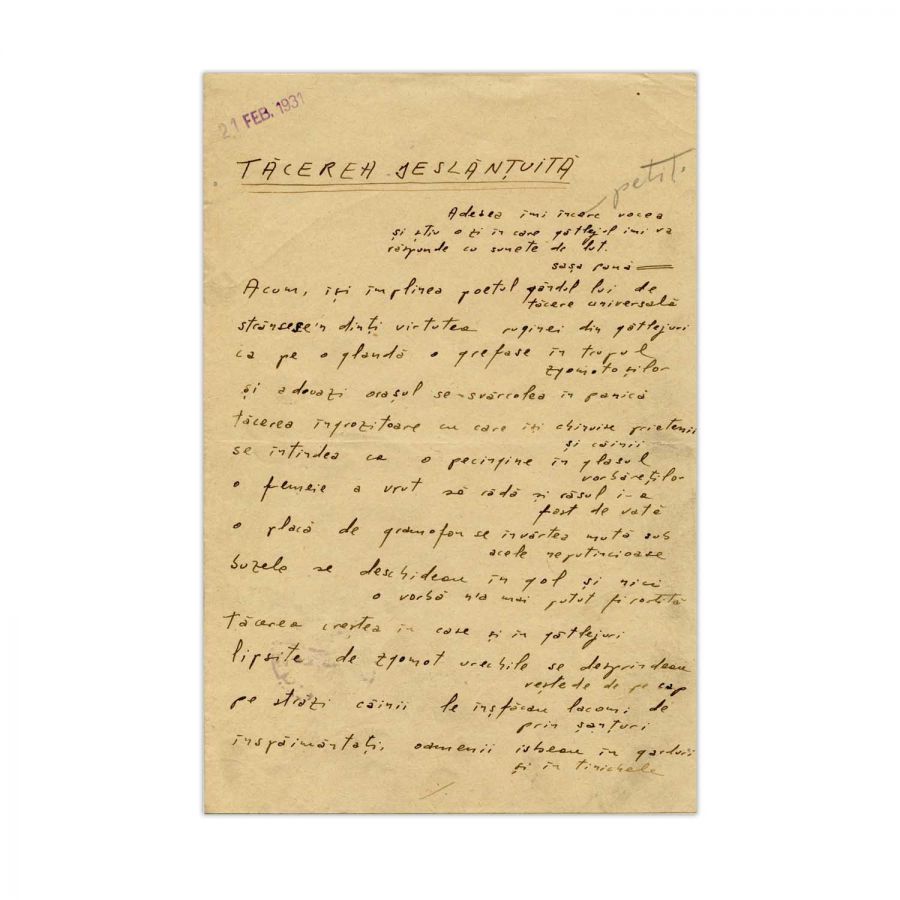 21 FEB. 1931
TĂCEREA DESLĂNȚUITĂ
petit.
Adesea îmi încerc vocea
și știu o zi în care gâtlejul îmi va
răspunde cu sunete de lut.
sașa pană
Acum, își împlinea poetul gândul lui de
tăcere universală
strânsese'n dinți virtutea ruginei din gâtlejuri
ca pe o glandă o grefase în trupul
zgomotoșilor
și adouazi orașul se svârcolea în panică
tăcerea îngrozitoare cu care își chinuise prietenii
și câinii
se întindea ca o pecingine în glasul
vorbăreților
o femeie a vrut să râdă și râsul i-a
fost de vată
o placă de gramofon se învârtea mută sub
acele neputincioase
buzele se deschideau în gol și nici
o vorbă n'a mai putut fi rostită
tăcerea creștea în case și în gâtlejuri
lipsite de zgomot urechile se desprindeau
veștede de pe cap
pe străzi câinii le înșfăcau lacomi de
prin șanțuri
înspăimântați, oamenii isbeau în garduri
și în tinichele
./.